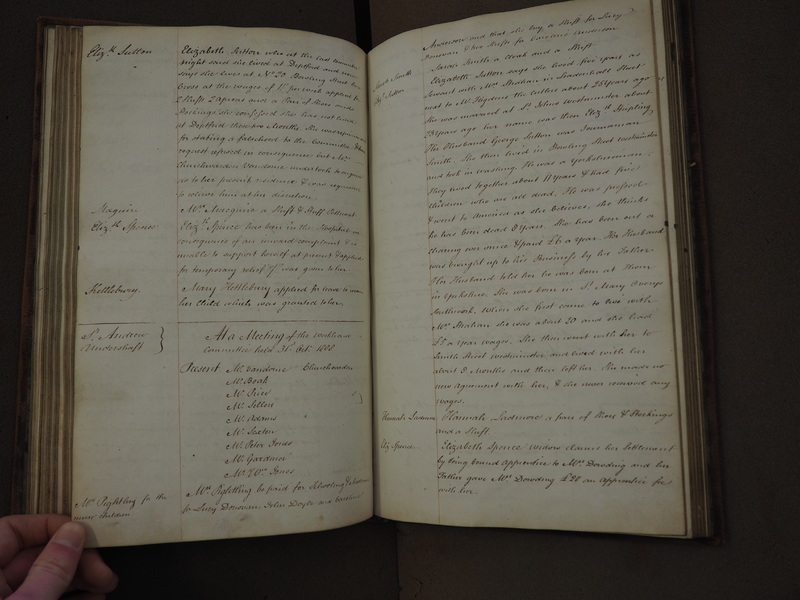 Eliz.th Sutton
Elizabeth Sutton who at the last
night said she lived at Deptford and now
says she lives at No. 20 Bowling Street
at the wages of 1/ per week applied for
2 Shifts 2 Aprons and a Pair of Shoes and
Stockings she confessed she has not lived
at Deptford these two Months. She was
for stating a falsehood to the Committee
request refused in consequence but Mr.
Churchwarden Vandome undertook to
as to her present residence & was
to relieve her at his discretion.
Maguire
Mrs. Macguire a Shift & Stuff Petticoat
Eliz.th Spence
Eliz.th Spence has been in the Hospital in
consequence of an inward complaint & is
unable to support herself at present & applied
for temporary relief was given to her
Kettlebury
Mary Kettlebury applied for leave to
her Child which was granted to her.
St. Andrew
Undershaft
At a Meeting of the workhouse
Committee held 31. Oct. 1808
Present Mr. Vandome Churchwarden
Mr. Boak
Mr. Price
Mr. Adams
Mr. Sexton
Mr. Peter Jones
Mr. Gardner
Mr. Wm. Jones
Mrs. Pightling for the
children
Mrs. Pightling be paid for Schooling
for Lucy Donovan, John Doyle and
Anderson and that she buy a Shift for Lucy
Donovan & two Shifts for Anderson.
Sarah Smith
Sarah Smith a Cloak and a Shift
Eliz. Sutton
Elizabeth Sutton says she lived five years as
Servant with Mrs. Strahan in Leadenhall Street
next to Mr. the cutlers about 25 Years ago
she was married at St. Johns Westminster about
23 Years ago her name was then Eliz.th
Her Husband George Sutton was Journeyman
Smith. She then lived in Bowling Street Westminster
and took in washing. He was a Yorkshireman.
They lived together about 11 Years & had five
Children who are all dead. He was pressed
& went to America as she believes, she thinks
he has been dead 8 Years. She has been out a
charing ever since & paid £6 a year. Her Husband
was brought up to his Business by his Father
Her Husband told her he was born at Thorn
in Yorkshire. She was born in St. Mary Overys
Southwark. When she first came to live with
Mrs. Strahan she was about 20 and she had
£5 a year wages. She then went with her to
Smith Street Westminster and lived with her
about 9 Months and then left her. She made no
new agreement with her, & she never received any
wages.
Hannah
Hannah Ladmore a pair of Shoes & Stockings
and a Shift
Eliz Spence
Elizabeth Spence Widow claims her Settlement
by being bound Apprentice to Mrs. Dowding and her
Father gave Mrs. Dowding £20 an Apprentice fee
with her.